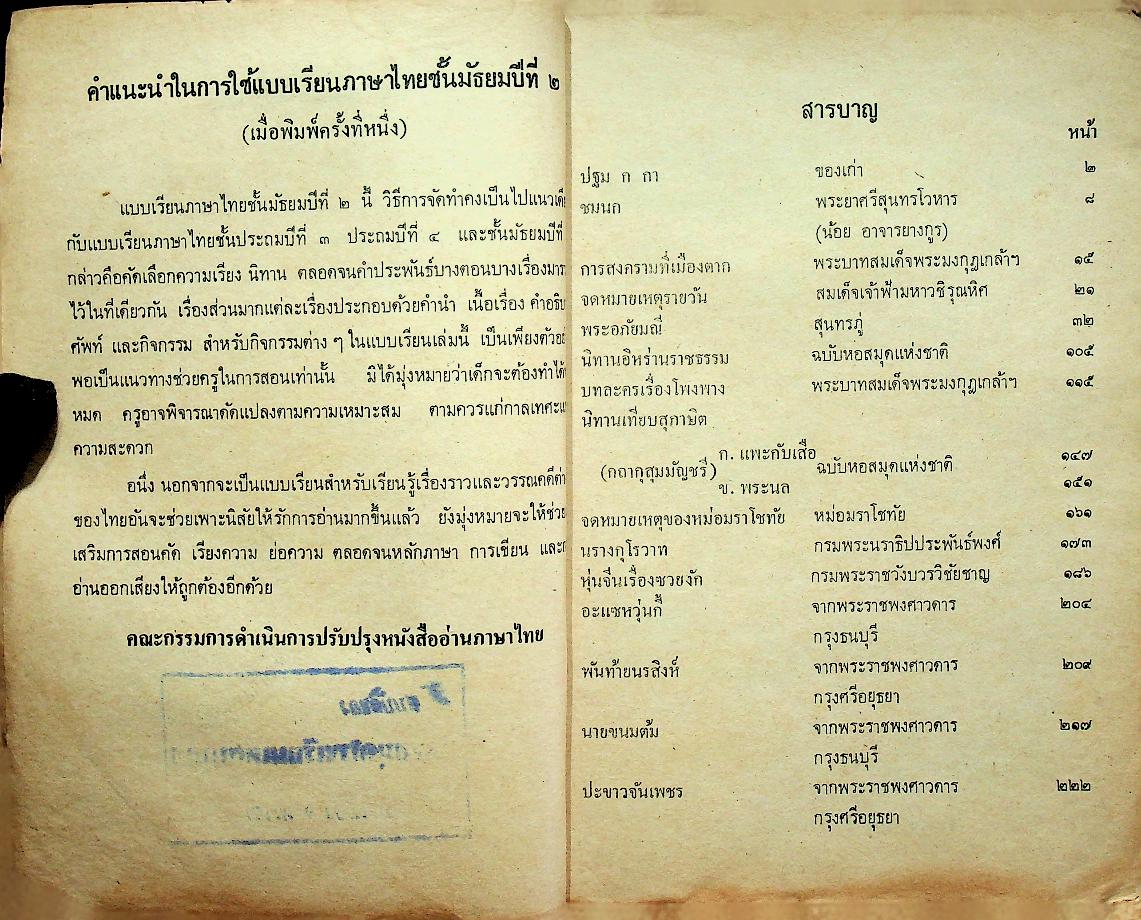 คำแนะนำในการใช้แบบเรียนภาษาไทยชั้นมัธยมปีที่ ๒
(เมื่อพิมพ์ครั้งที่หนึ่ง)
แบบเรียนภาษาไทยชั้นมัธยมปีที่ ๒ นี้ วิธีการจัดทำคงเป็นไปแนว
กับแบบเรียนภาษาไทยชั้นประถมปีที่ ๓ ประถมปีที่ ๔ และชั้นมัธยมปีที่
กล่าวคือคัดเลือกความเรียง นิทาน ตลอดจนคำประพันธ์บางตอนบางเรื่องมา
ไว้ในที่เดียวกัน เรื่องส่วนมากแต่ละเรื่องประกอบด้วยคำนำ เนื้อเรื่อง
ศัพท์ และกิจกรรม สำหรับกิจกรรมต่าง ๆ ในแบบเรียนเล่มนี้ เป็นเพียง
พอเป็นแนวทางช่วยครูในการสอนเท่านั้น มิได้มุ่งหมายว่าเด็กจะต้องทำ
หมด ครูอาจพิจารณาดัดแปลงตามความเหมาะสม ตามควรแก่กาลเทศะ
ความสะดวก
อนึ่ง นอกจากจะเป็นแบบเรียนสำหรับเรียนรู้เรื่องราวและวรรณคดี
ของไทยอันจะช่วยเพาะนิสัยให้รักการอ่านมากขึ้นแล้ว ยังมุ่งหมายจะให้ช่วย
เสริมการสอนคัด เรียงความ ย่อความ ตลอดจนหลักภาษา การเขียน
อ่านออกเสียงให้ถูกต้องอีกด้วย
คณะกรรมการดำเนินการปรับปรุงหนังสืออ่านภาษาไทย
สารบาญ
หน้า
ปฐม ก กา ของเก่า ๒
ชมนก พระยาศรีสุนทรโวหาร ๘
(น้อย อาจารยางกูร)
การสงครามที่เมืองตาก พระบาทสมเด็จพระมงกุฎเกล้าฯ ๑๕
จดหมายเหตุรายวัน สมเด็จเจ้าฟ้ามหาวชิรุณหิศ ๒๑
พระอภัยมณี สุนทรภู่ ๓๒
นิทานอิหร่านราชธรรม ฉบับหอสมุดแห่งชาติ ๑๐๕
บทละครเรื่องโพงพาง พระบาทสมเด็จพระมงกุฎเกล้าฯ ๑๑๕
นิทานเทียบสุภาษิต
ก. แพะกับเสือ ๑๔๗
(กถากุสุมมัญชรี) ฉบับหอสมุดแห่งชาติ
ข. พระนล ๑๕๑
จดหมายเหตุของหม่อมราโชทัย หม่อมราโชทัย ๑๖๑
นรางกุโรวาท กรมพระนราธิปประพันธ์พงศ์ ๑๗๓
หุ่นจีนเรื่องซวยงัก กรมพระราชวังบวรวิชัยชาญ ๑๘๖
อะแซหวุ่นกี้ จากพระราชพงศาวดาร ๒๐๔
กรุงธนบุรี
พันท้ายนรสิงห์ จากพระราชพงศาวดาร ๒๐๙
กรุงศรีอยุธยา
นายขนมต้ม จากพระราชพงศาวดาร ๒๑๗
กรุงธนบุรี
ปะขาวจันเพชร จากพระราชพงศาวดาร ๒๒๒
กรุงศรีอยุธยา